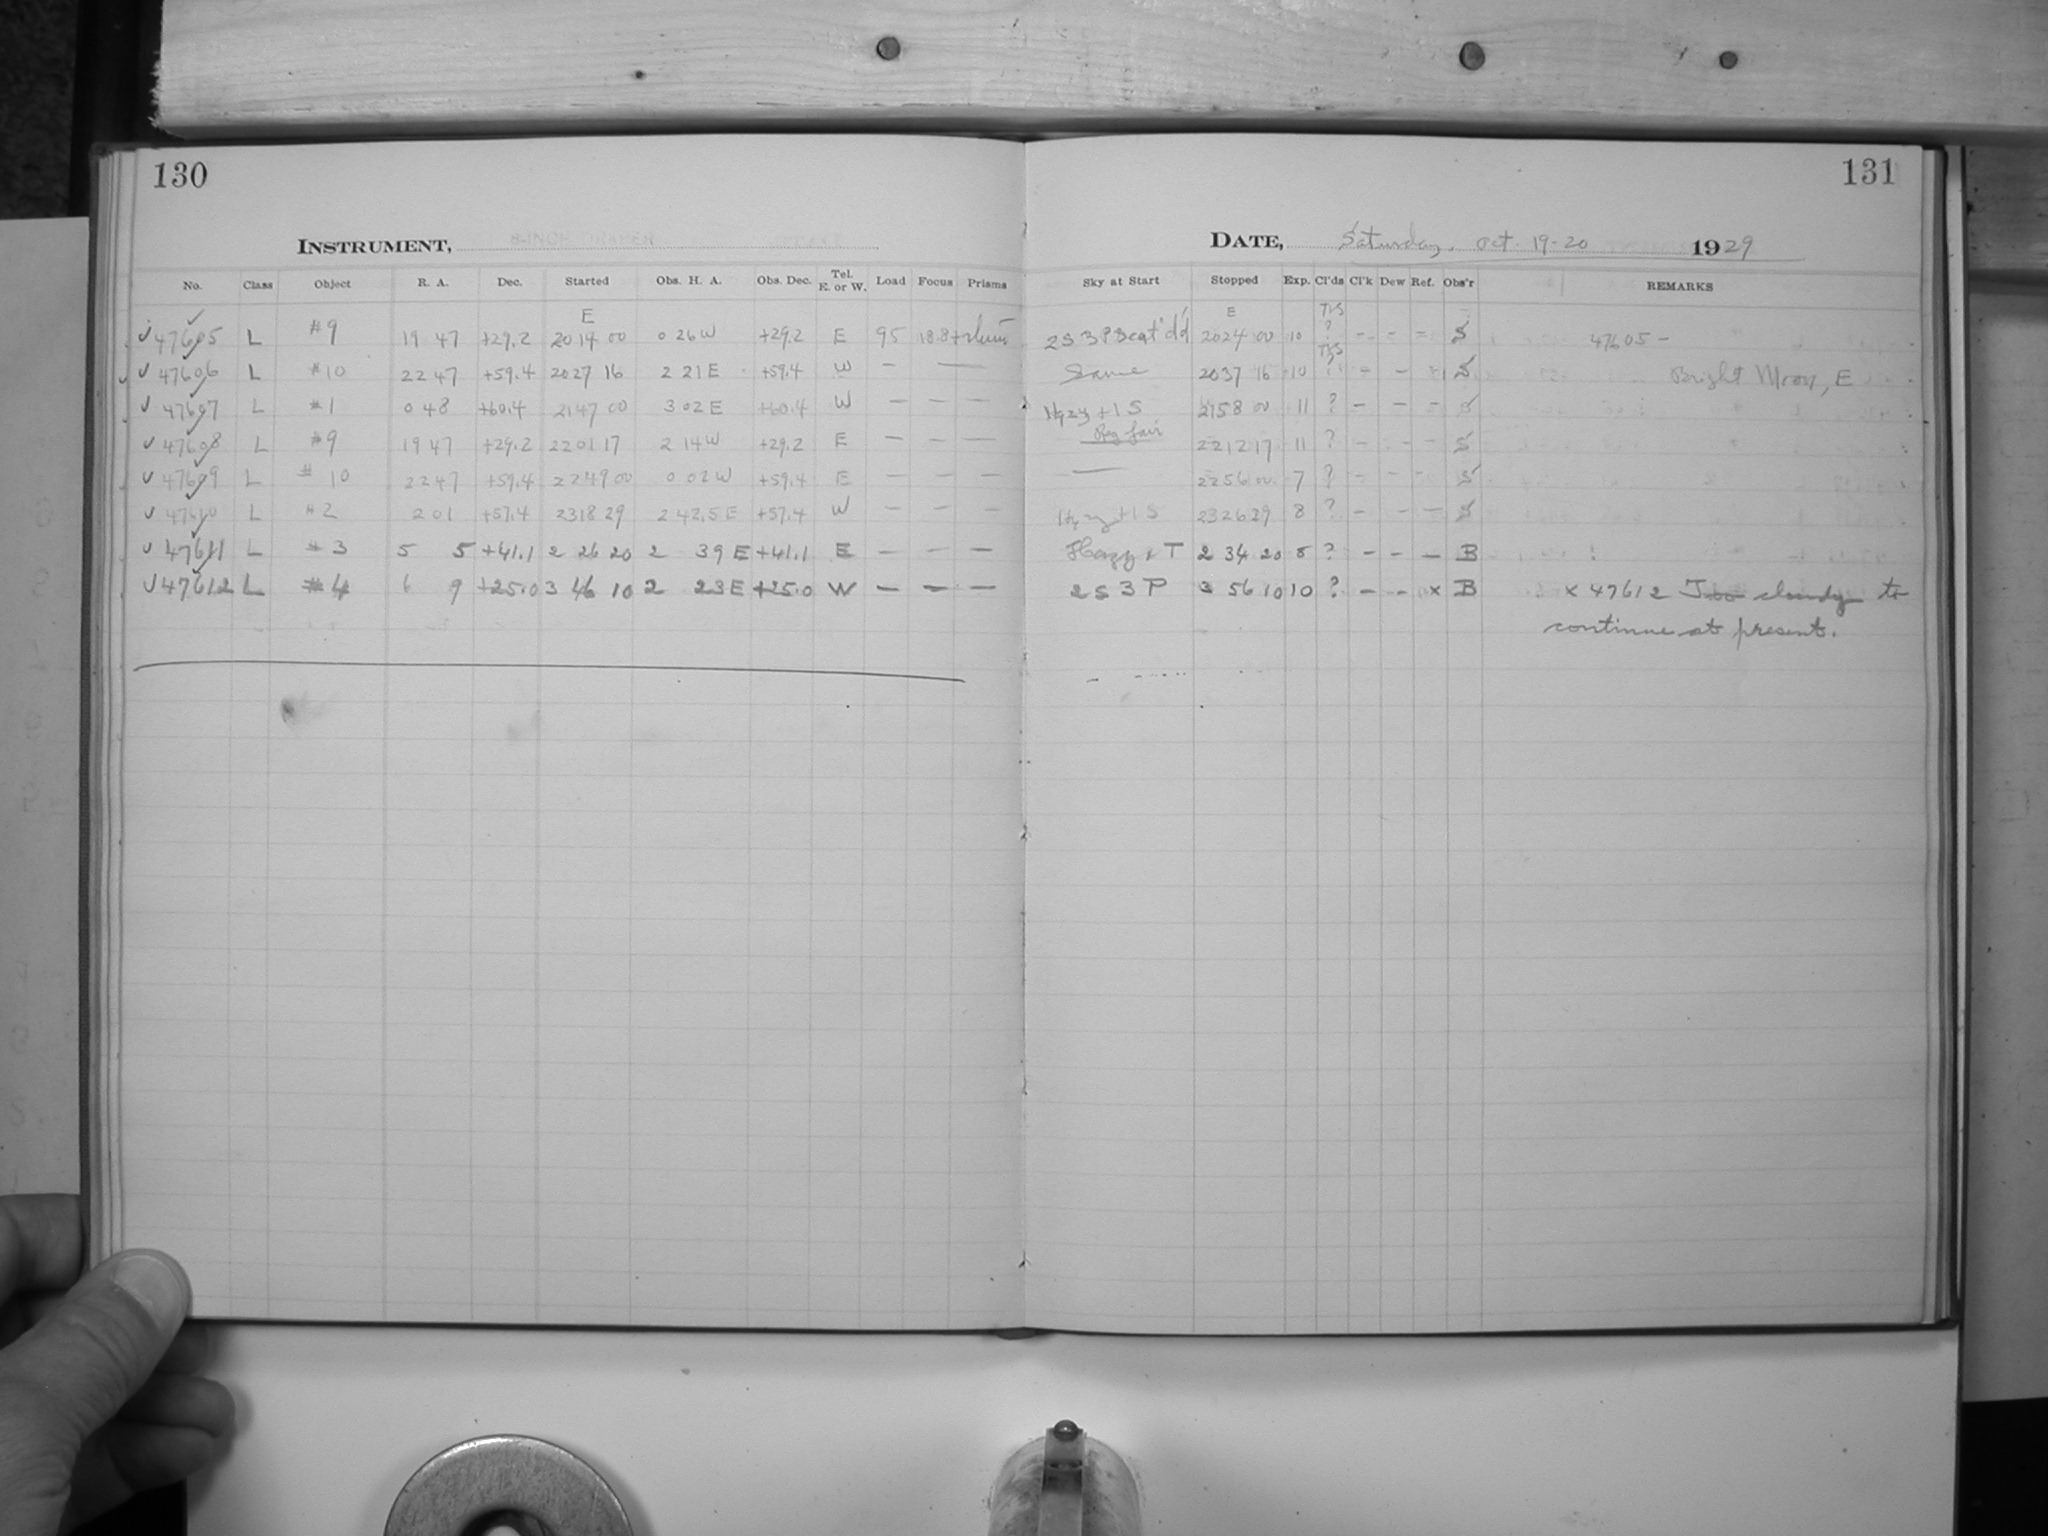 130
131
INSTRUMENT, 8-INCH DRAPER
DATE, Saturday, Oct. 19-20 1929
No. Class Object R. A. Dec. Started Obs. H. A. Obs. Dec. Tel. E. or W. Load Focus Prisms Sky at Start Stopped Exp. Cl'ds Cl'k Dew Ref. Obs'r REMARKS
E E
47605 L #9 19 47 +29.2 20 14 00 0 26 W +29.2 E 95 2S 3P Scat'd 20 24 00 10 ? - - - S 47605 -
47606 L #10 22 47 +59.4 20 27 16 2 21 E +59.4 W - — Same 20 37 16 10 - - S Bright Moon, E
47607 L #1 0 48 +60.4 21 47 00 3 02 E +60.4 W - - - Hazy + 1 S 21 58 00 11 ? - - - S
47608 L #9 19 47 +29.2 22 01 17 2 14 W +29.2 E - - - Reg fair 22 12 17 11 ? - - - S
47609 L #10 22 47 +59.4 22 49 00 0 02 W +59.4 E - - - — 22 56 00 7 ? - - - S
47610 L #2 2 01 +57.4 23 18 29 2 42.5 E +57.4 W - - - Hazy + 1 S 23 26 29 8 ? - - - S
47611 L #3 5 5 +41.1 2 26 20 2 39 E +41.1 E - - - Hazy & T 2 34 20 8 ? - - - B
47612 L #4 6 9 +25.0 3 46 10 2 23 E +25.0 W - - - 2 S 3 P 3 56 10 10 ? - - x B x 47612 Too cloudy to
continue at present.